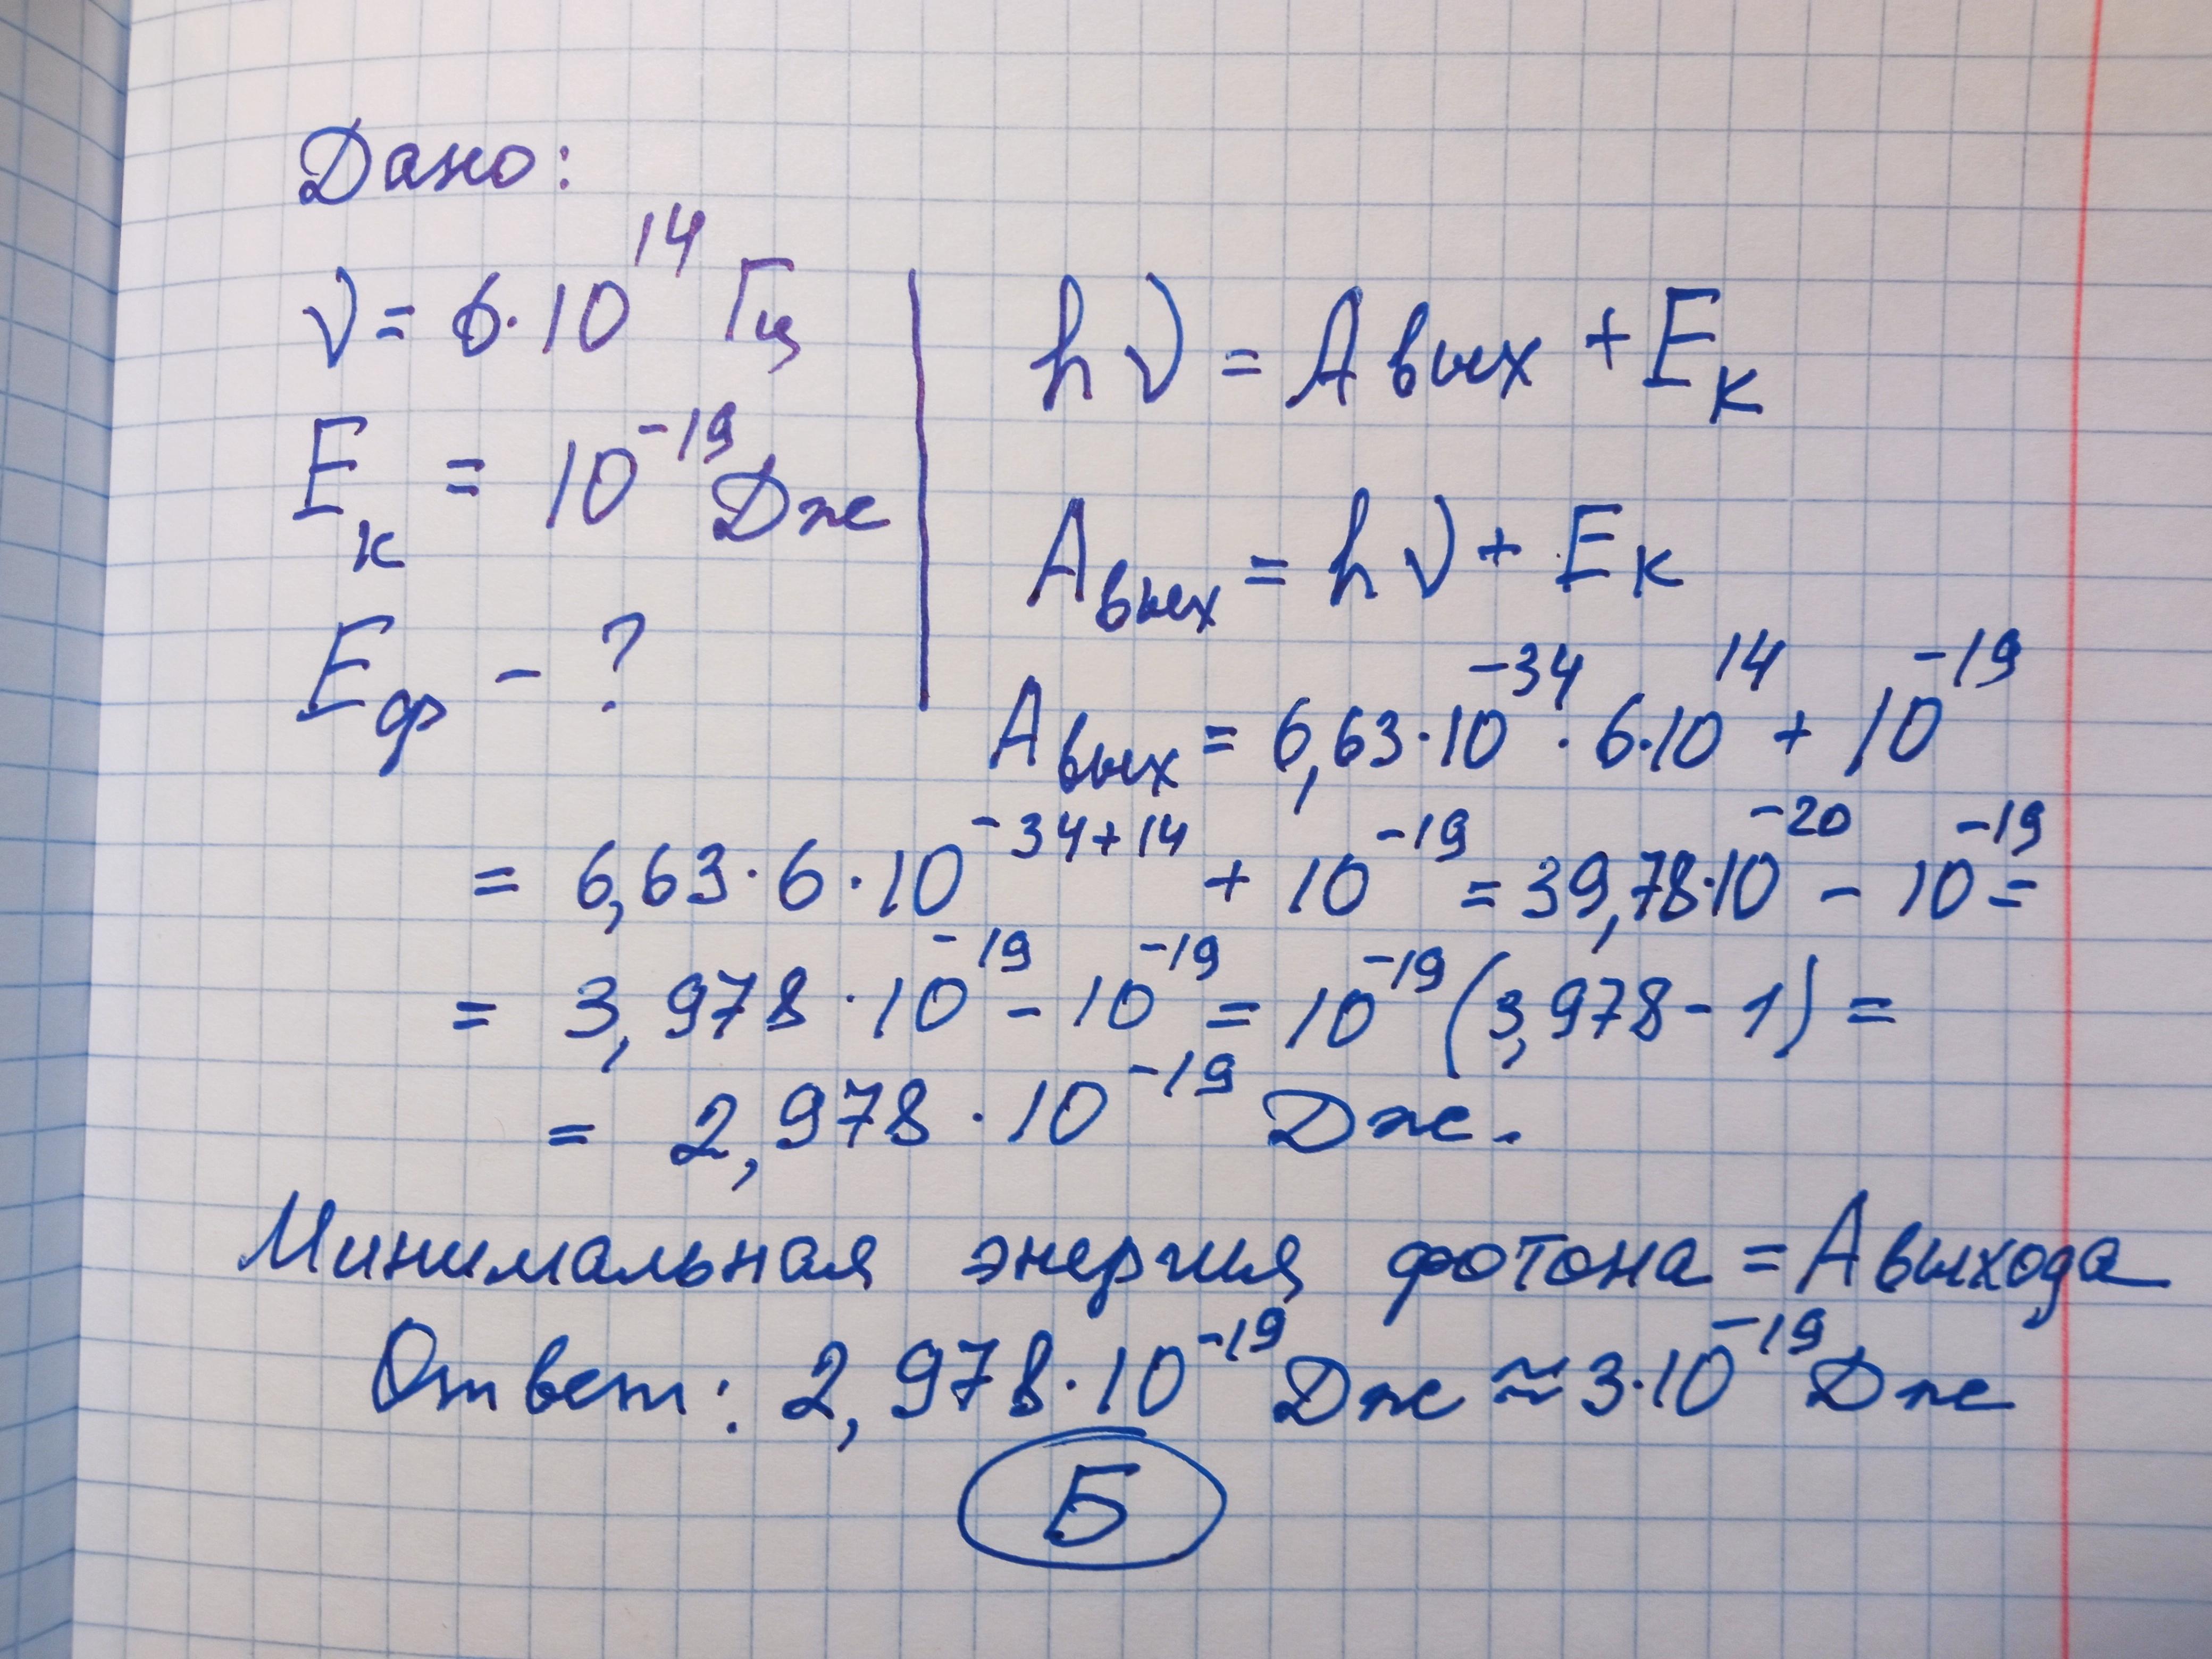 Дано:
ν = 6·10¹⁴ Гц
Eₖ = 10⁻¹⁹ Дж
E_ф - ?
hν = Aвых + Eₖ
Aвых = hν + Eₖ
Aвых = 6,63·10⁻³⁴ · 6·10¹⁴ + 10⁻¹⁹
= 6,63·6·10⁻³⁴⁺¹⁴ + 10⁻¹⁹ = 39,78·10⁻²⁰ - 10⁻¹⁹ =
= 3,978·10⁻¹⁹ - 10⁻¹⁹ = 10⁻¹⁹ (3,978 - 1) =
= 2,978 · 10⁻¹⁹ Дж.
Минимальная энергия фотона = Aвыхода
Ответ: 2,978·10⁻¹⁹ Дж ≈ 3·10⁻¹⁹ Дж
Б